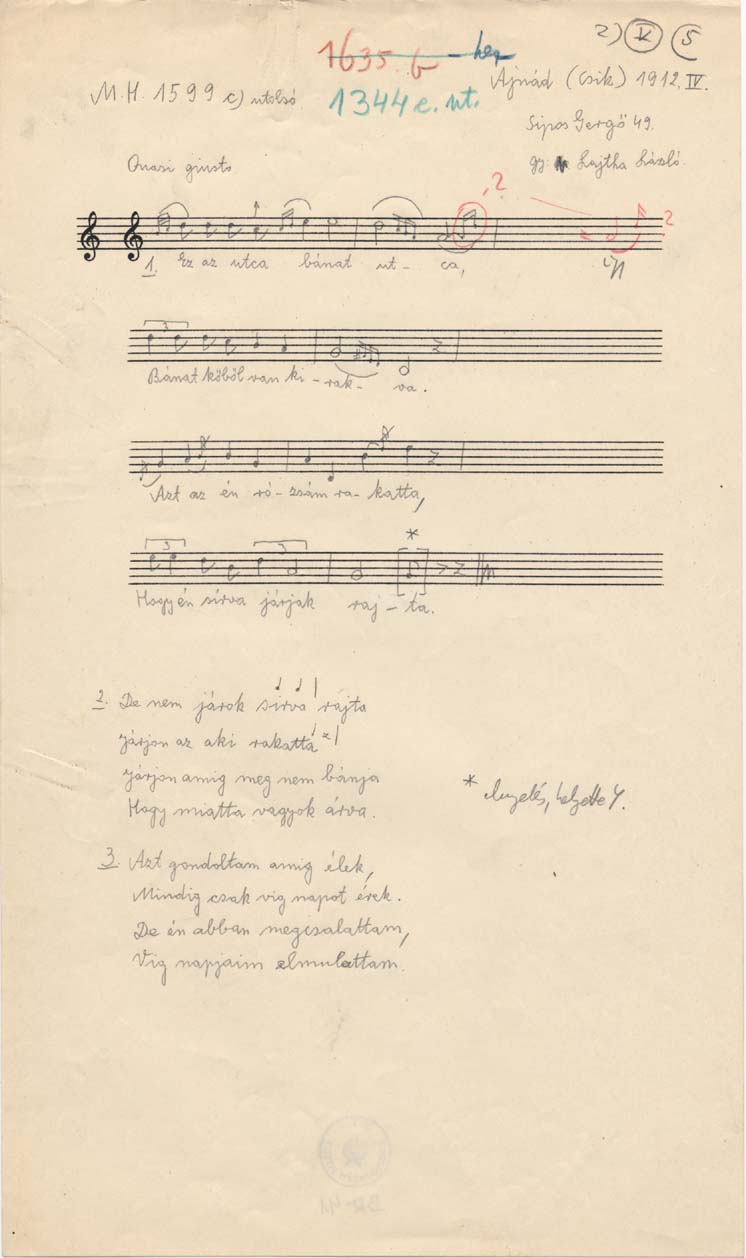 2) V 5
1635 b
1344 c. ut.
M.H. 1599 c) utolsó
Ajnád (Csik) 1912. IV.
Sipos Gergő 49.
gy. Lajtha László.
Quasi giusto
, ?
?
1. Ez az utca bánat ut - ca,
3
Bánat kőből van ki - rak - va.
Azt az én ró - zsám ra - katta,
*
3 3
Hogy én sírva járjak raj - ta.
2. De nem járok sirva rajta
Járjon az aki rakatta
Járjon amig meg nem bánja
Hogy miatta vagyok árva.
* helyette
3. Azt gondoltam amig élek,
Mindig csak vig napot érek.
De én abban megcsalattam,
Vig napjaim elmulattam.
BR-41